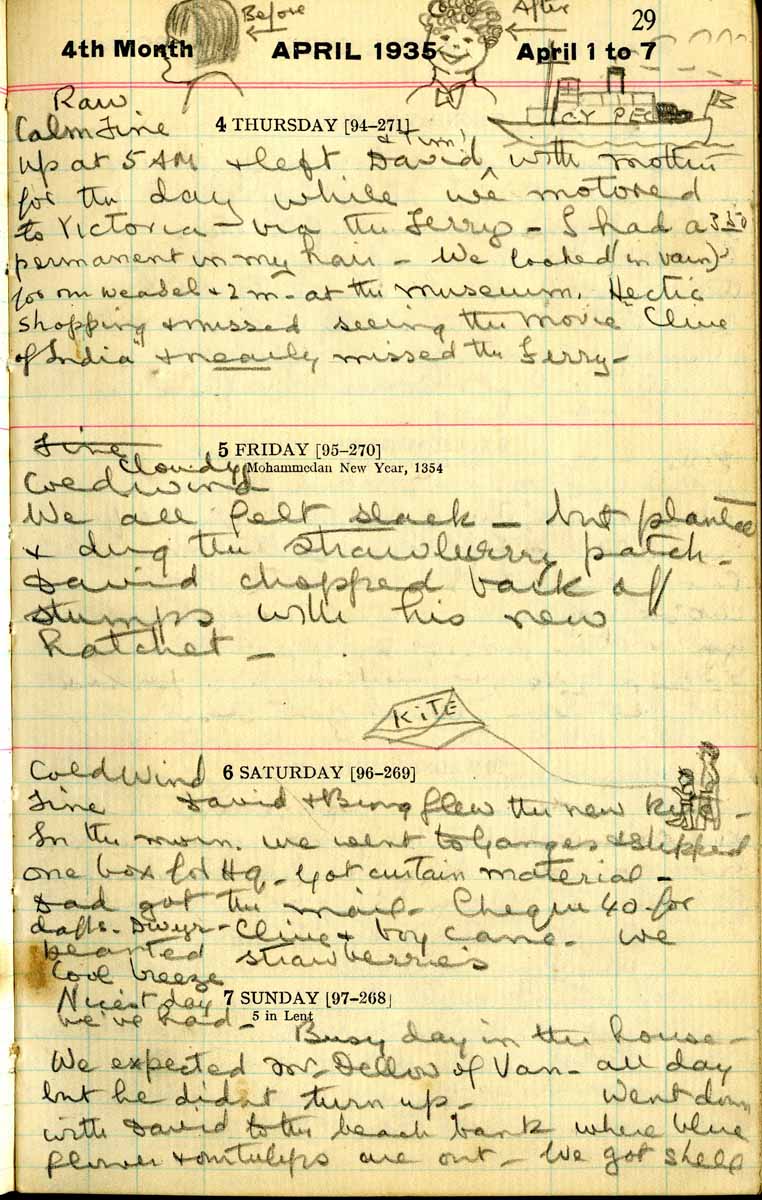 Before
After
29
4th Month APRIL 1935 April 1 to 7
CY PECK
Raw
Calm Fine
4 THURSDAY [94–271]
& Tim
up at 5 AM & left David, with mother
for the day while we motored
to Victoria – via the Ferry – I had a 3.50
permanent in my hair – We looked (in vain)
for our weasel & 2 m– at the museum. Hectic
shopping & missed seeing the movie "Clive
of India" & nearly missed the Ferry –
Fine
5 FRIDAY [95–270]
Cloudy
Mohammedan New Year, 1354
Cold Wind
We all felt slack – but planted
& dug the strawberry patch –
David chopped back of
stumps with his new
hatchet –
KiTE
Cold Wind
6 SATURDAY [96–269]
Fine David & Bing flew the new kite –
In the morn. we went to Ganges & shipped
one box for HQ – Got curtain material –
Dad got the mail – Cheque 40 – for
dafts. Dwyr – Clive & boy came – we
planted strawberries
Cool breeze
Nicest day
7 SUNDAY [97–268]
we've had –
5 in Lent
Busy day in the house –
We expected Mr. Dellow of Van – all day
but he didn't turn up – Went down
with David to the beach bank where blue
flower & our tulips are out – We got shell